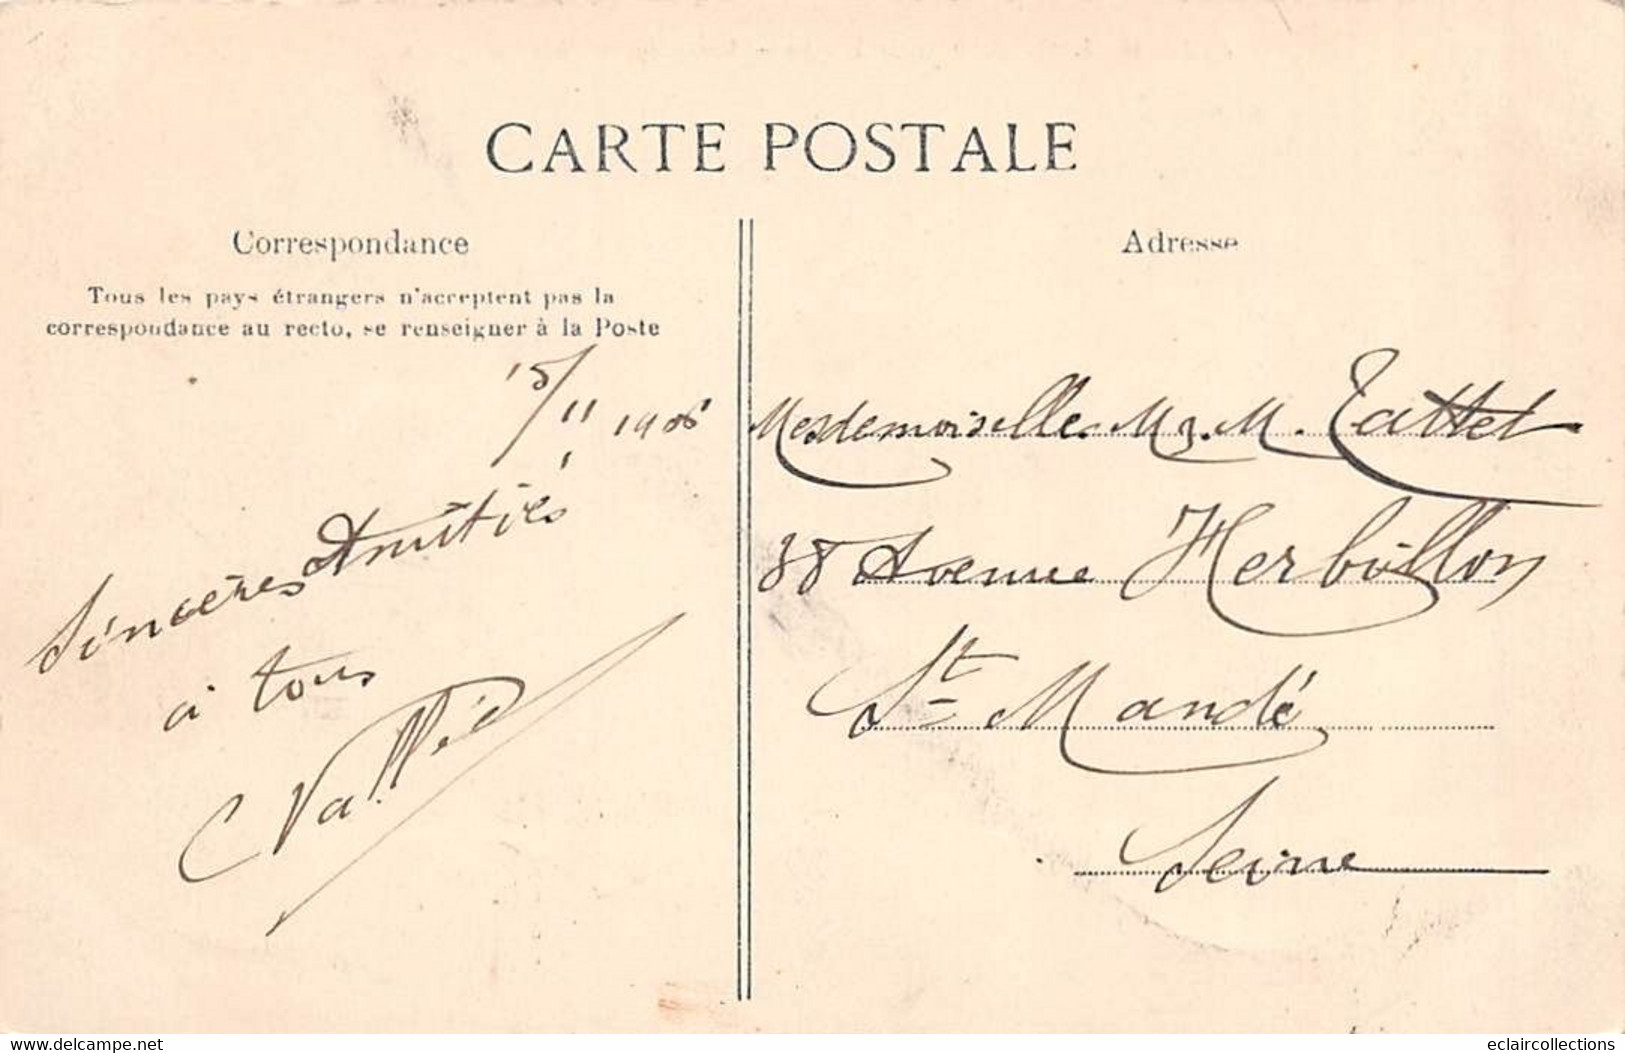 CARTE POSTALE
Correspondance
Tous les pays étrangers n'acceptent pas la
correspondance au recto, se renseigner à la Poste
15/11 1906
Sincères Amitiés
à tous
C Vallée
Adresse
Mesdemoiselles M &. M. Tattet
38 Avenue Herbillon
St Mandé
Seine
www.delcampe.net
eclaircollections